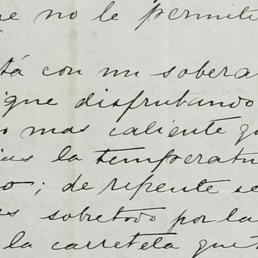 ue no le permiti
tá con un sobera
igue disfrutando
o mas caliente qu
ias la temperatu
o; de repente se
es sobretodo por la
la carretela que